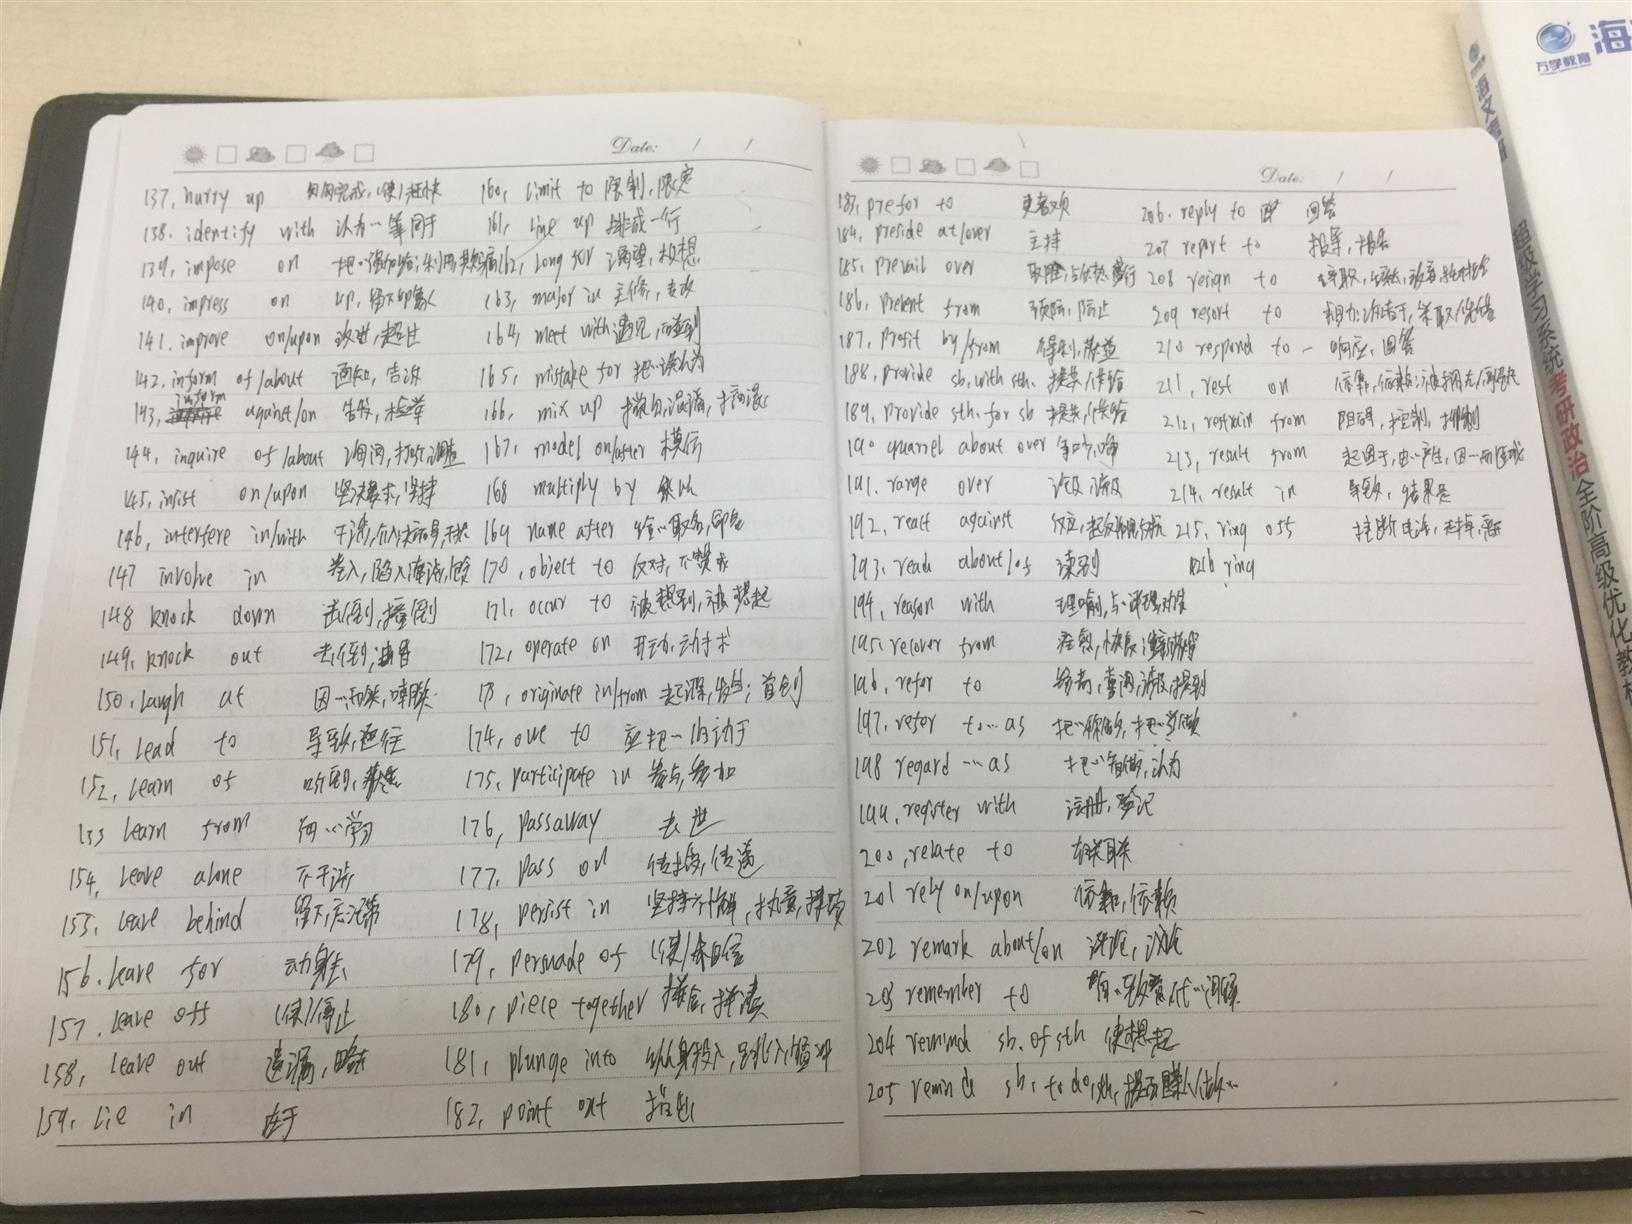 Date: / /
137, hurry up 匆匆完成,(使)赶快
138. identify with 认为…等同于
139, impose on 把…强加给;利用,欺骗
140, impress on up, 留下印象
141. improve on/upon 改进,超过
142, inform of/about 通知,告诉
143, inform against/on 告发,检举
144, inquire of/about 询问,打听,调查
145, insist on/upon 坚决要求,坚持
146, interfere in/with 干涉,介入
147 involve in 卷入,陷入
148 knock down 击倒,撞倒
149, knock out 击倒
150, laugh at 因…而笑,嘲笑
151, lead to 导致,通往
152, learn of 听到
153 learn from 向…学习
154, leave alone 不干涉
155, leave behind 留下,忘记带
156. leave for 动身去
157. leave off (使)停止
158, leave out 遗漏,略去
159, lie in 在于
160, limit to 限制,限定
161, line up 排成一行
162, long for 渴望,极想
163, major in 主修,专攻
164, meet with 遇见,碰到
165, mistake for 把…误认为
166, mix up 混淆
167, model on/after 模仿
168 multiply by 乘以
169 name after 给…取名
170, object to 反对,不赞成
171, occur to 被想到,被想起
172, operate on 开动,动手术
173, originate in/from 起源,发生;首创
174, owe to 应把…归功于
175, participate in 参与,参加
176, passaway 去世
177, pass on 传授,传递
178, persist in 坚持不懈,执意,持续
179, persuade of (使)相信
180, piece together 拼合,拼凑
181, plunge into 纵身投入,跳入
182, point out 指出
Date: / /
183, prefor to 更喜欢
184, preside at/over 主持
185, prevail over
186, prevent from 预防,防止
187, profit by/from 得利,获益
188, provide sb. with sth. 提供,供给
189, provide sth. for sb 提供,供给
190 quarrel about over 争吵
191. range over 涉及
192, react against 反应
193, read about/of 读到
194, reason with
195, recover from 痊愈,恢复
196, refer to 参考,查阅,涉及,提到
197, refer to…as 把…称做
198 regard …as 把…看做,认为
199, register with 注册,登记
200, relate to 有关联系
201 rely on/upon 依靠,依赖
202 remark about/on 评论,议论
203 remember to 代…问候
204 remind sb. of sth 使想起
205 remind sb. to do sth, 提醒某人做…
206. reply to 回答
207 report to 报导,报告
208 resign to 辞职
209 resort to 求助于,诉诸于,采取
210 respond to 响应,回答
211, rest on 依靠,依赖
212, restrain from 阻碍,控制,抑制
213, result from 起因于,由…产生,因…而造成
214, result in 导致,结果是
215, ring off 挂断电话
216 ring
万学教育
海
海文考研
超级学习系统考研政治全阶高级优化教程